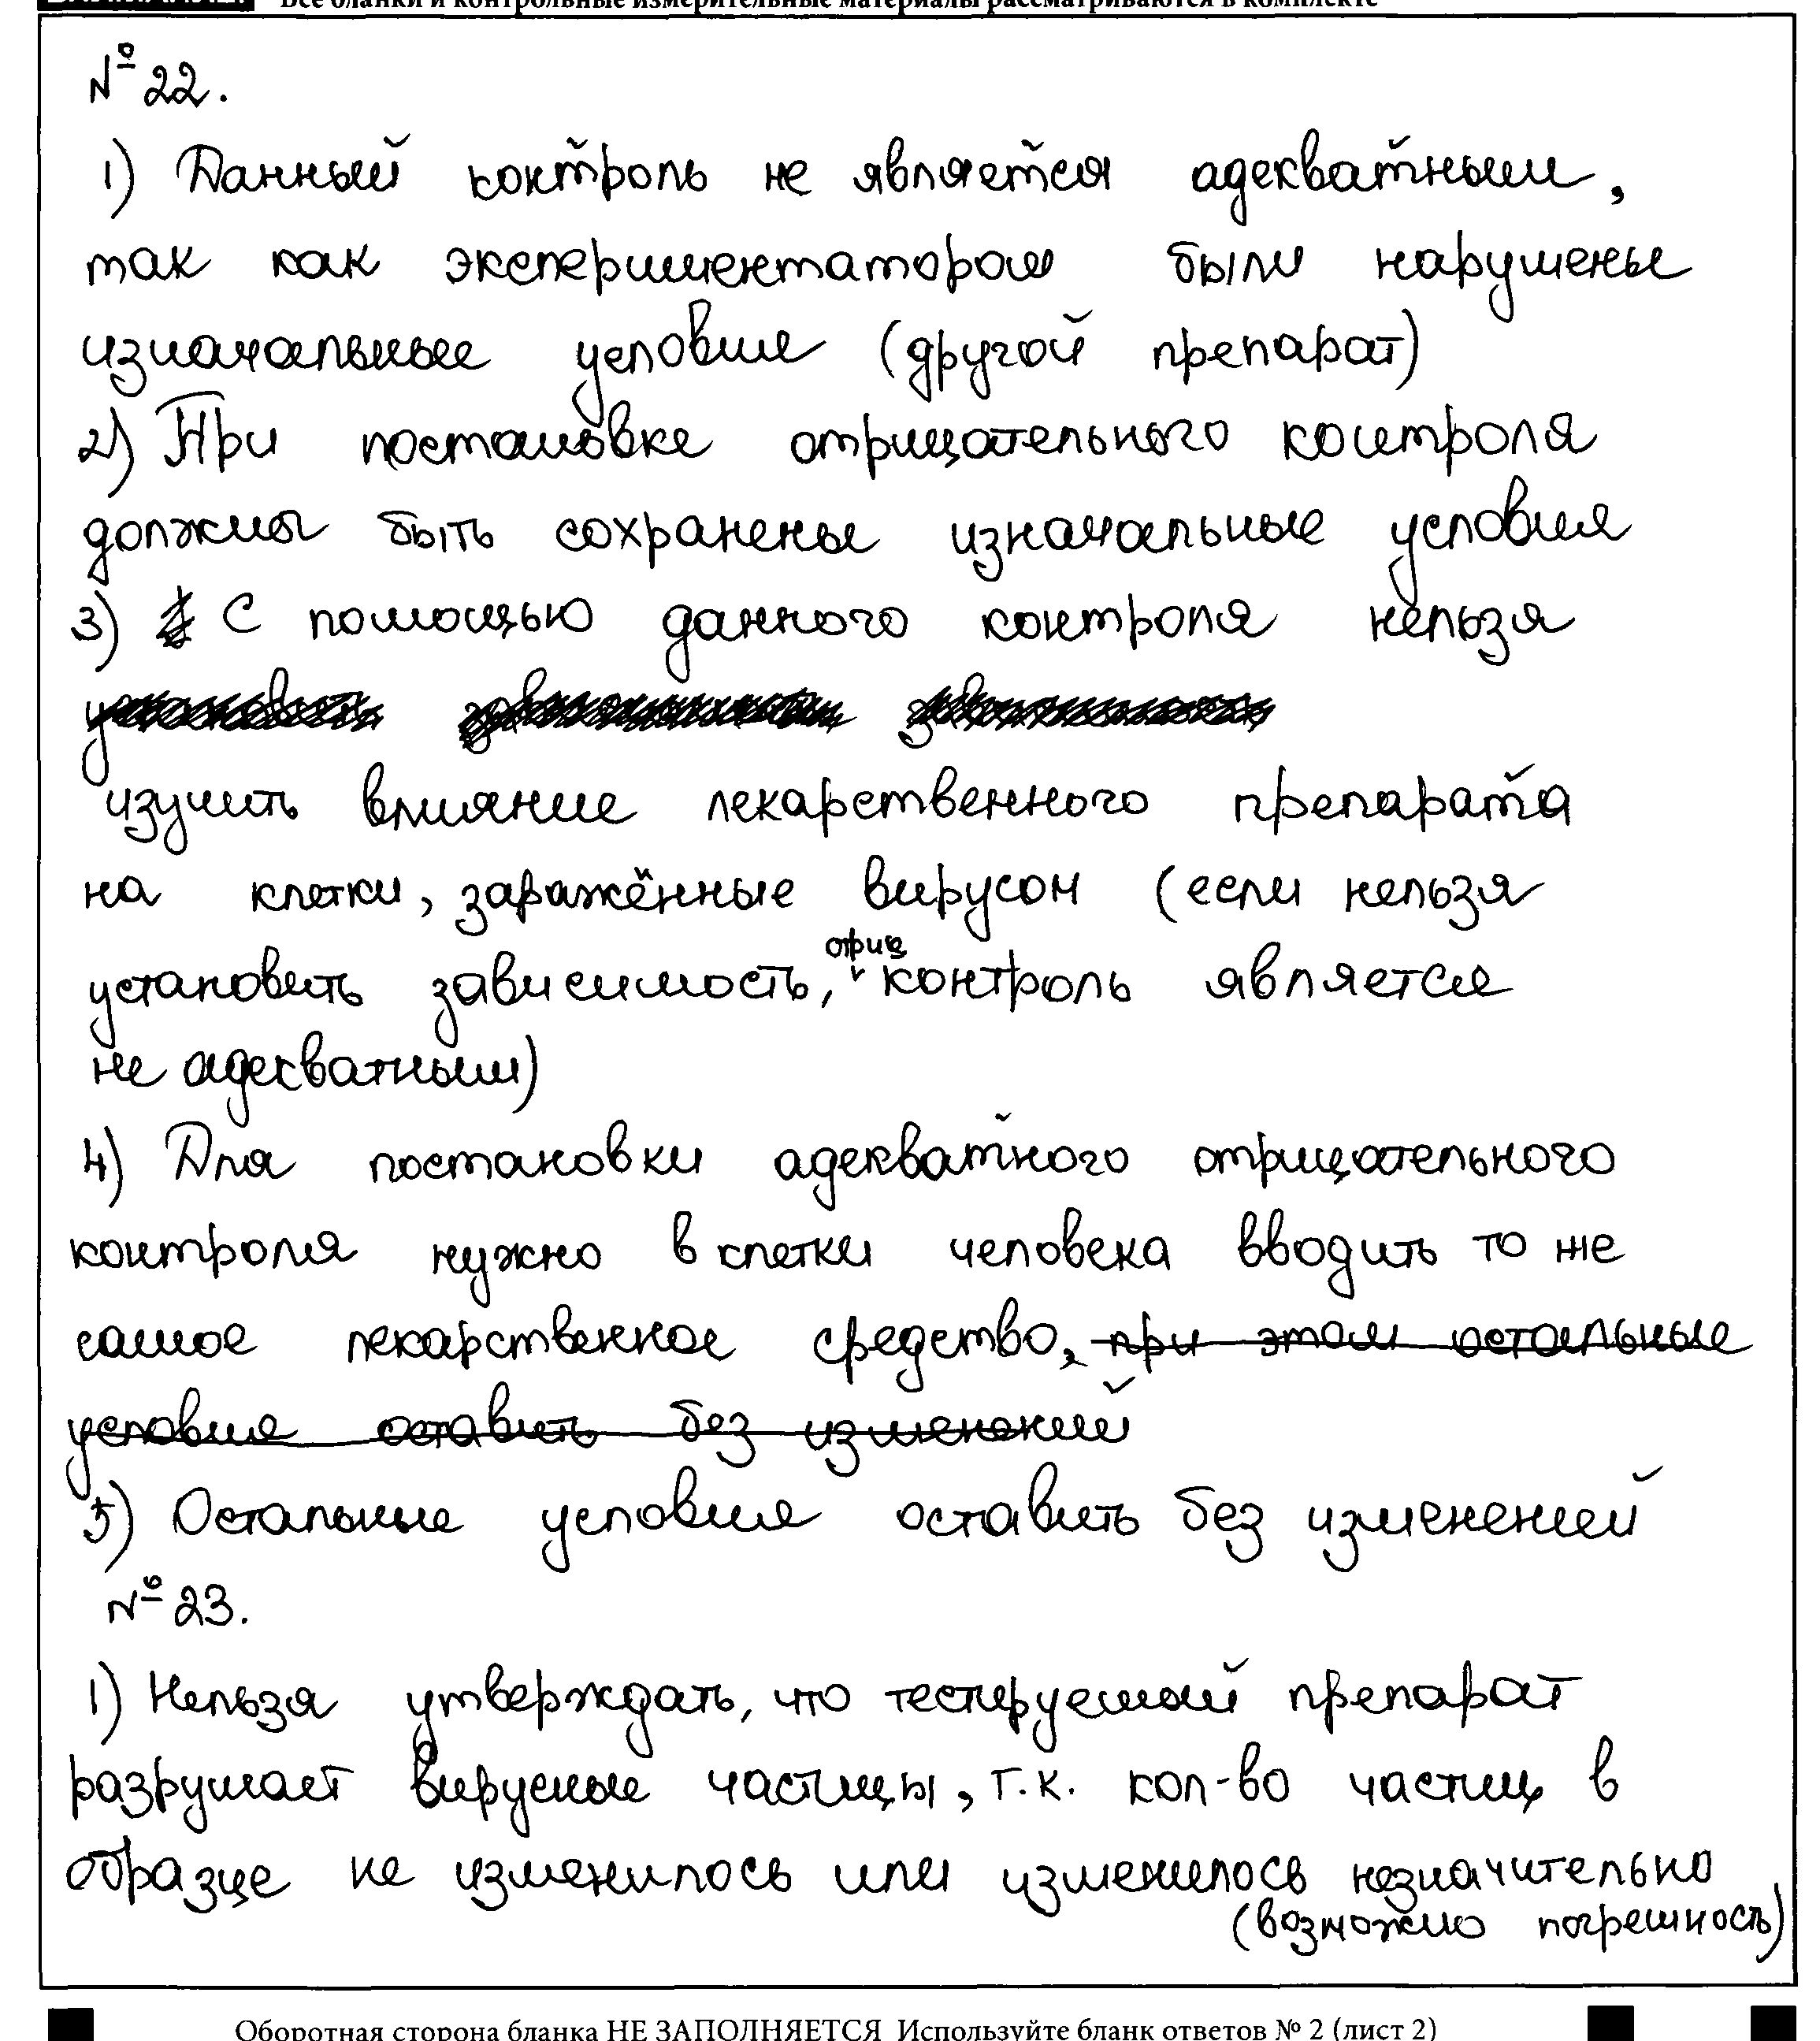 Все бланки и контрольные измерительные материалы рассматриваются в комплекте
№ 22.
1) Данный контроль не является адекватным,
так как экспериментатором были нарушены
изначальные условия (другой препарат)
2) При постановке отрицательного контроля
должны быть сохранены изначальные условия
3) С помощью данного контроля нельзя
изучить влияние лекарственного препарата
на клетки, заражённые вирусом (если нельзя
установить зависимость, отриц контроль является
не адекватным)
4) Для постановки адекватного отрицательного
контроля нужно в клетки человека вводить то же
самое лекарственное средство, при этом остальные
условия оставить без изменений
5) Остальные условия оставить без изменений
№ 23.
1) Нельзя утверждать, что тестируемый препарат
разрушает вирусные частицы, т.к. кол-во частиц в
образце не изменилось или изменилось незначительно
(возможно погрешность)
Оборотная сторона бланка НЕ ЗАПОЛНЯЕТСЯ Используйте бланк ответов № 2 (лист 2)